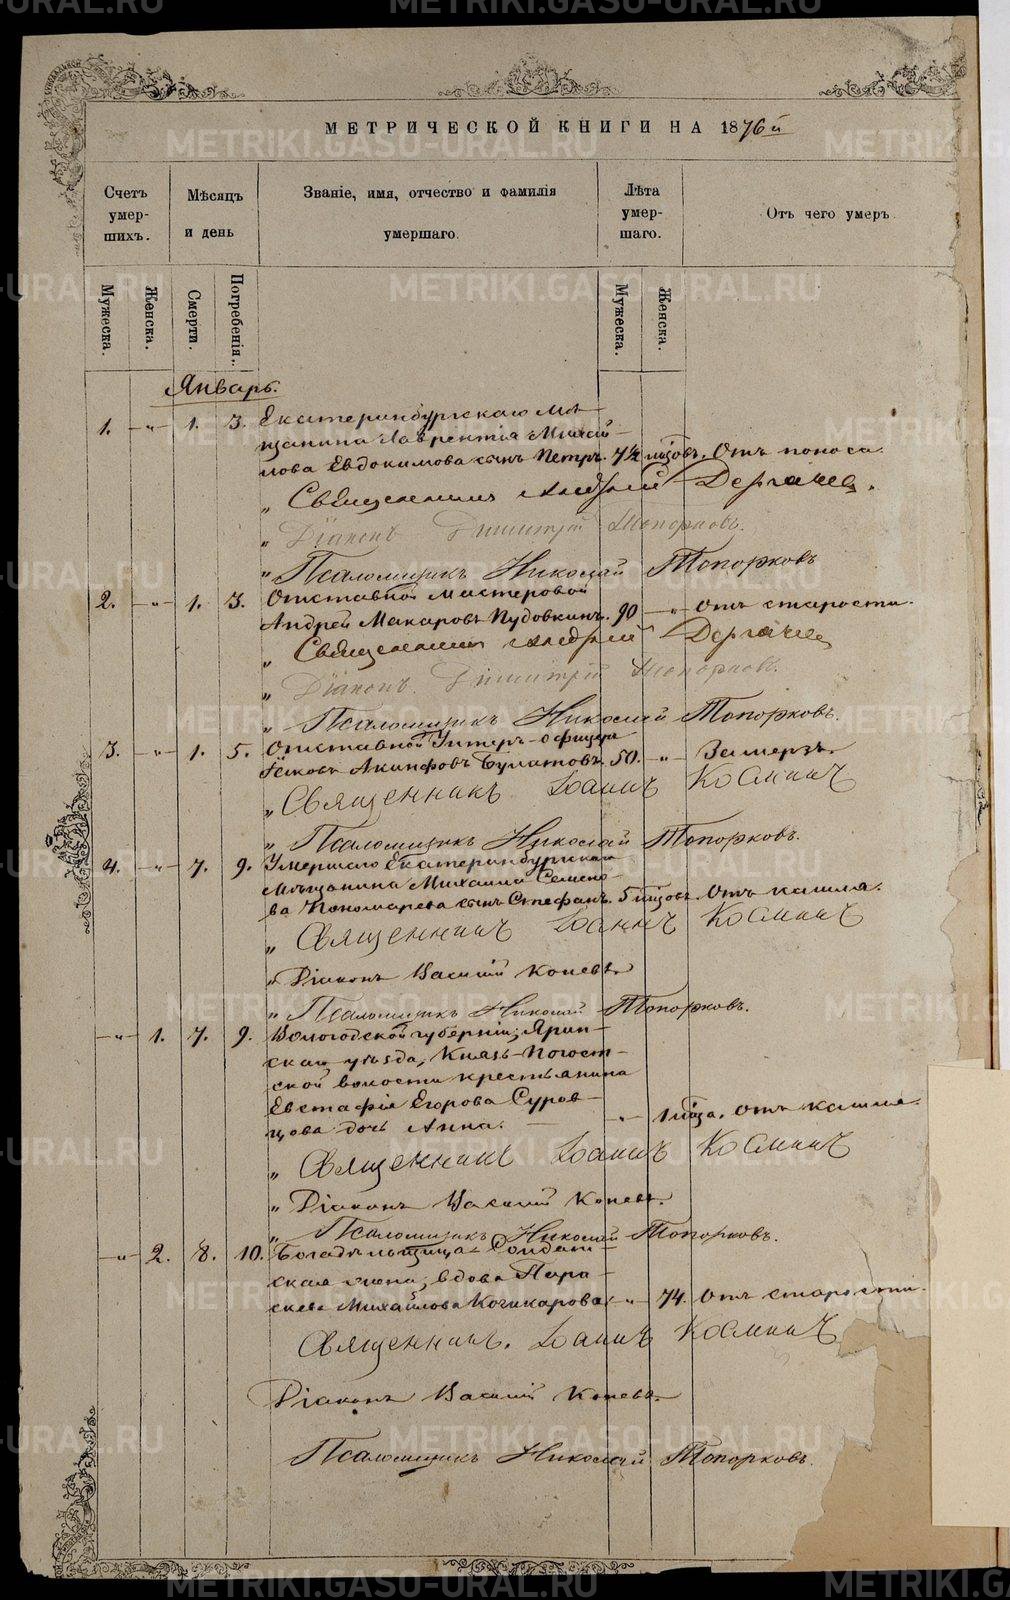 МЕТРИЧЕСКОЙ КНИГИ НА 1876й
Счетъ умер-шихъ.
Мѣсяцъ и день
Званіе, имя, отчество и фамилія умершаго.
Лѣта умер-шаго.
Отъ чего умеръ
Мужеска.
Женска.
Смерти.
Погребенія.
Мужеска.
Женска.
Январь.
1. -"- 1. 3. Екатеринбургскаго мѣ-
щанина Лаврентія Михай-
лова Евдокимова сынъ Петръ. 7½ мѣсяцовъ. Отъ поноса.
" Священникъ Андрей Дергачев.
" Діаконъ Димитрій Топорковъ.
" Псаломщикъ Николай Топорковъ
2. -"- 1. 3. Отставной мастеровой
Андрей Макаровъ Пудовкинъ. 90 -"- Отъ старости.
" Священникъ Андрей Дергачев
" Діаконъ Димитрій Топорковъ.
" Псаломщикъ Николай Топорковъ.
3. -"- 1. 5. Отставной Унтеръ-офицеръ
Іаковъ Акинфовъ Булатовъ. 50. -"- Замерзъ.
" Священникъ Іоаннъ Косминъ
" Псаломщикъ Николай Топорковъ.
4. -"- 7. 9. Умершаго Екатеринбургскаго
мѣщанина Михаила Семено-
ва Пономарева сынъ Стефанъ. 5 мѣсяцовъ Отъ кашля.
" Священникъ Іоаннъ Косминъ
" Діаконъ Василій Коневъ
" Псаломщикъ Николай Топорковъ.
-"- 1. 7. 9. Вологодской губерніи, Ярин-
скаго уѣзда, Князь-Погост-
ской волости крестьянина
Евстафія Егорова Суров-
цова дочь Анна. -"- 1 мѣсяца. Отъ кашля.
" Священникъ Іоаннъ Косминъ
" Діаконъ Василій Коневъ.
" Псаломщикъ Николай Топорковъ.
-"- 2. 8. 10. Богадѣльщица Солдат-
ская жена, вдова Пара-
скева Михайлова Кочкарова -"- 74. Отъ старости.
Священникъ. Іоаннъ Косминъ
Діаконъ Василій Коневъ.
Псаломщикъ Николай Топорковъ.
METRIKI.GASO-URAL.RU